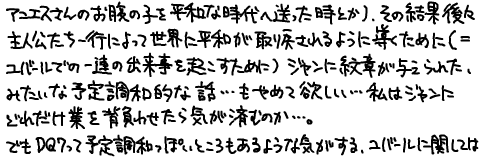 アニエスさんのお腹の子を平和な時代へ送った時とか)、その結果後々
主人公たち一行によって世界に平和が取り戻されるように導くために(=
ユバールでの一連の出来事を起こすために)ジャンに紋章が与えられた、
みたいな予定調和的な話…もやめて欲しい…私はジャンに
どれだけ業を背負わせたら気が済むのか…。
でもDQ7って予定調和っぽいところもあるような気がする、ユバールに関しては